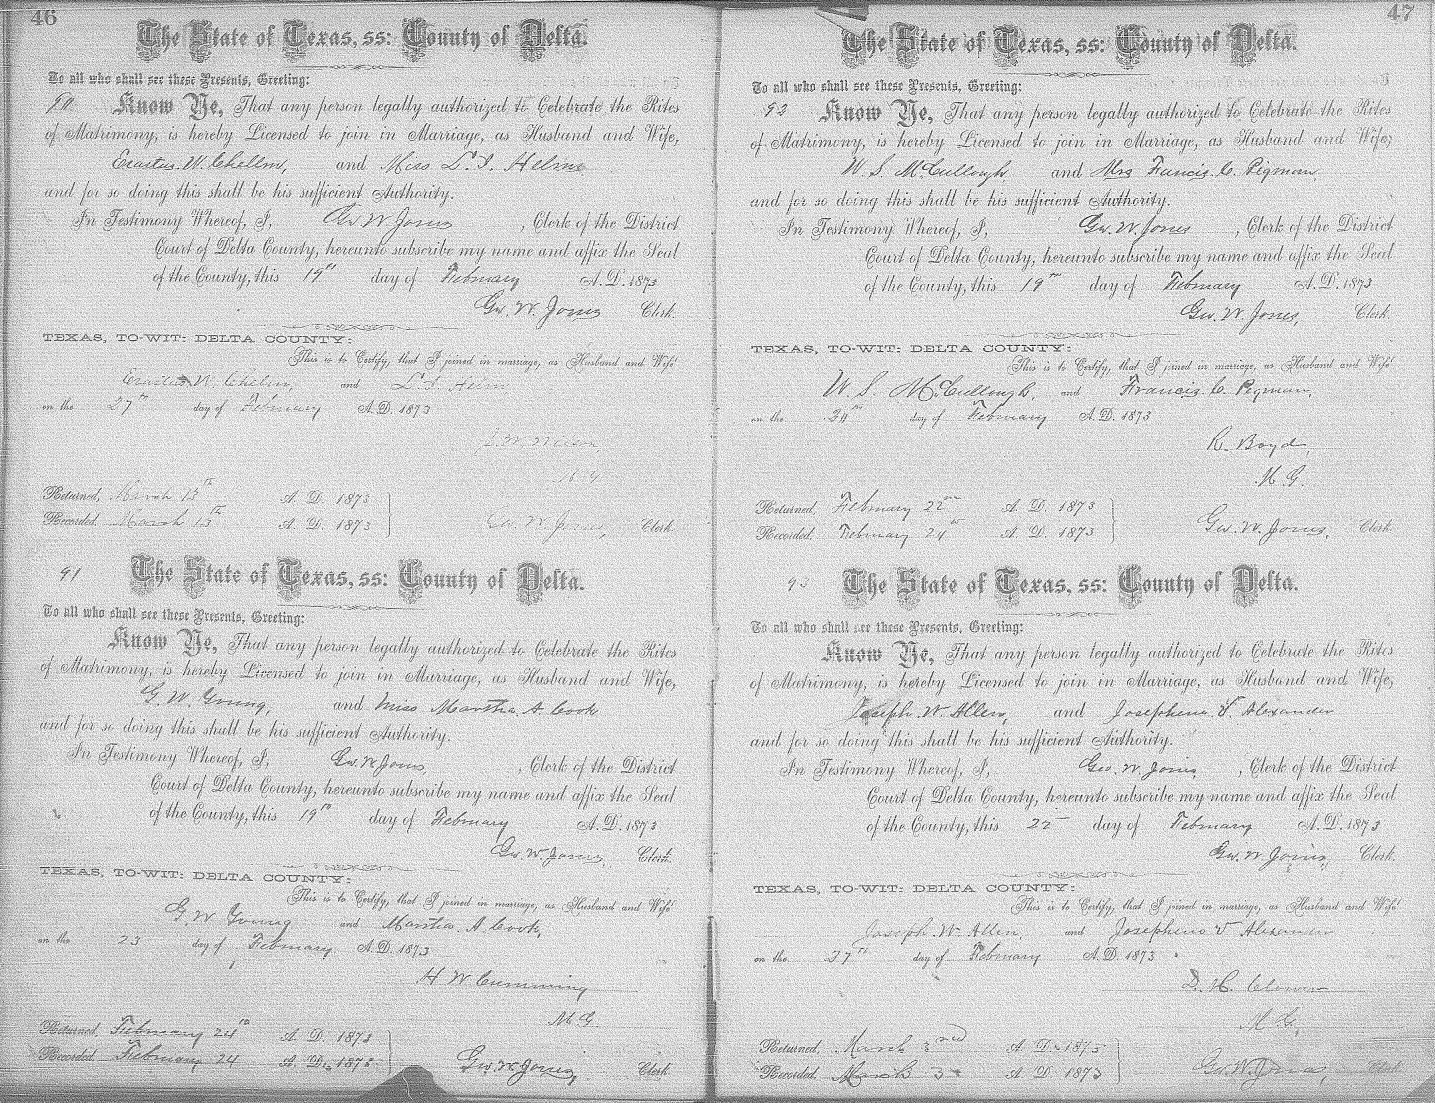 46
The State of Texas, ss: County of Delta.
To all who shall see these Presents, Greeting:
90 Know Ye, That any person legally authorized to Celebrate the Rites
of Matrimony, is hereby Licensed to join in Marriage, as Husband and Wife,
Erastus. W. Chelm, and Miss L. I. Helms
and for so doing this shall be his sufficient Authority.
In Testimony Whereof, I, Geo W Jones , Clerk of the District
Court of Delta County, hereunto subscribe my name and affix the Seal
of the County, this 19th day of February A.D. 1873
Geo. W. Jones Clerk.
TEXAS, TO-WIT: DELTA COUNTY:
This is to Certify, that I joined in marriage, as Husband and Wife
Erastus W. Chelm, and L I Helm
on the 27th day of February A.D. 1873
M G
Returned, March 13th A. D. 1873
Recorded, March 13th A. D. 1873 Geo. W. Jones, Clerk.
91 The State of Texas, ss: County of Delta.
To all who shall see these Presents, Greeting:
Know Ye, That any person legally authorized to Celebrate the Rites
of Matrimony, is hereby Licensed to join in Marriage, as Husband and Wife,
G. W. Young, and Miss Martha. A. Cook
and for so doing this shall be his sufficient Authority.
In Testimony Whereof, I, Geo W Jones, , Clerk of the District
Court of Delta County, hereunto subscribe my name and affix the Seal
of the County, this 19th day of February A.D. 1873
Geo. W. Jones, Clerk.
TEXAS, TO-WIT: DELTA COUNTY:
This is to Certify, that I joined in marriage, as Husband and Wife
G. W Young and Martha. A. Cook,
on the 23 day of February A.D. 1873
H W Cumming
M G.
Returned, February 24th A. D. 1873
Recorded, February 24 A. D. 1873 Geo. W. Jones, Clerk
47
The State of Texas, ss: County of Delta.
To all who shall see these Presents, Greeting:
92 Know Ye, That any person legally authorized to Celebrate the Rites
of Matrimony, is hereby Licensed to join in Marriage, as Husband and Wife,
W. S. McCullough and Mrs Francis. C. Pigman,
and for so doing this shall be his sufficient Authority.
In Testimony Whereof, I, Geo. W. Jones , Clerk of the District
Court of Delta County, hereunto subscribe my name and affix the Seal
of the County, this 19th day of February A.D. 1873
Geo. W. Jones, Clerk.
TEXAS, TO-WIT: DELTA COUNTY:
This is to Certify, that I joined in marriage, as Husband and Wife
W. S. McCullough, and Francis. C. Pigman,
on the 20th day of February A.D. 1873
R. Boyd,
M G.
Returned, February 22nd A. D. 1873
Recorded, February 24th A. D. 1873 Geo. W. Jones, Clerk.
93 The State of Texas, ss: County of Delta.
To all who shall see these Presents, Greeting:
Know Ye, That any person legally authorized to Celebrate the Rites
of Matrimony, is hereby Licensed to join in Marriage, as Husband and Wife,
Joseph. W. Allen, and Josephene. V. Alexander
and for so doing this shall be his sufficient Authority.
In Testimony Whereof, I, Geo. W. Jones, , Clerk of the District
Court of Delta County, hereunto subscribe my name and affix the Seal
of the County, this 22 day of February A.D. 1873
Geo. W. Jones, Clerk.
TEXAS, TO-WIT: DELTA COUNTY:
This is to Certify, that I joined in marriage, as Husband and Wife
Joseph. W. Allen, and Josephene V Alexander
on the 27th day of February A.D. 1873
D. H.
M G,
Returned, March 3rd A. D. 1873
Recorded, March 3rd A. D. 1873 Geo. W. Jones, Clerk